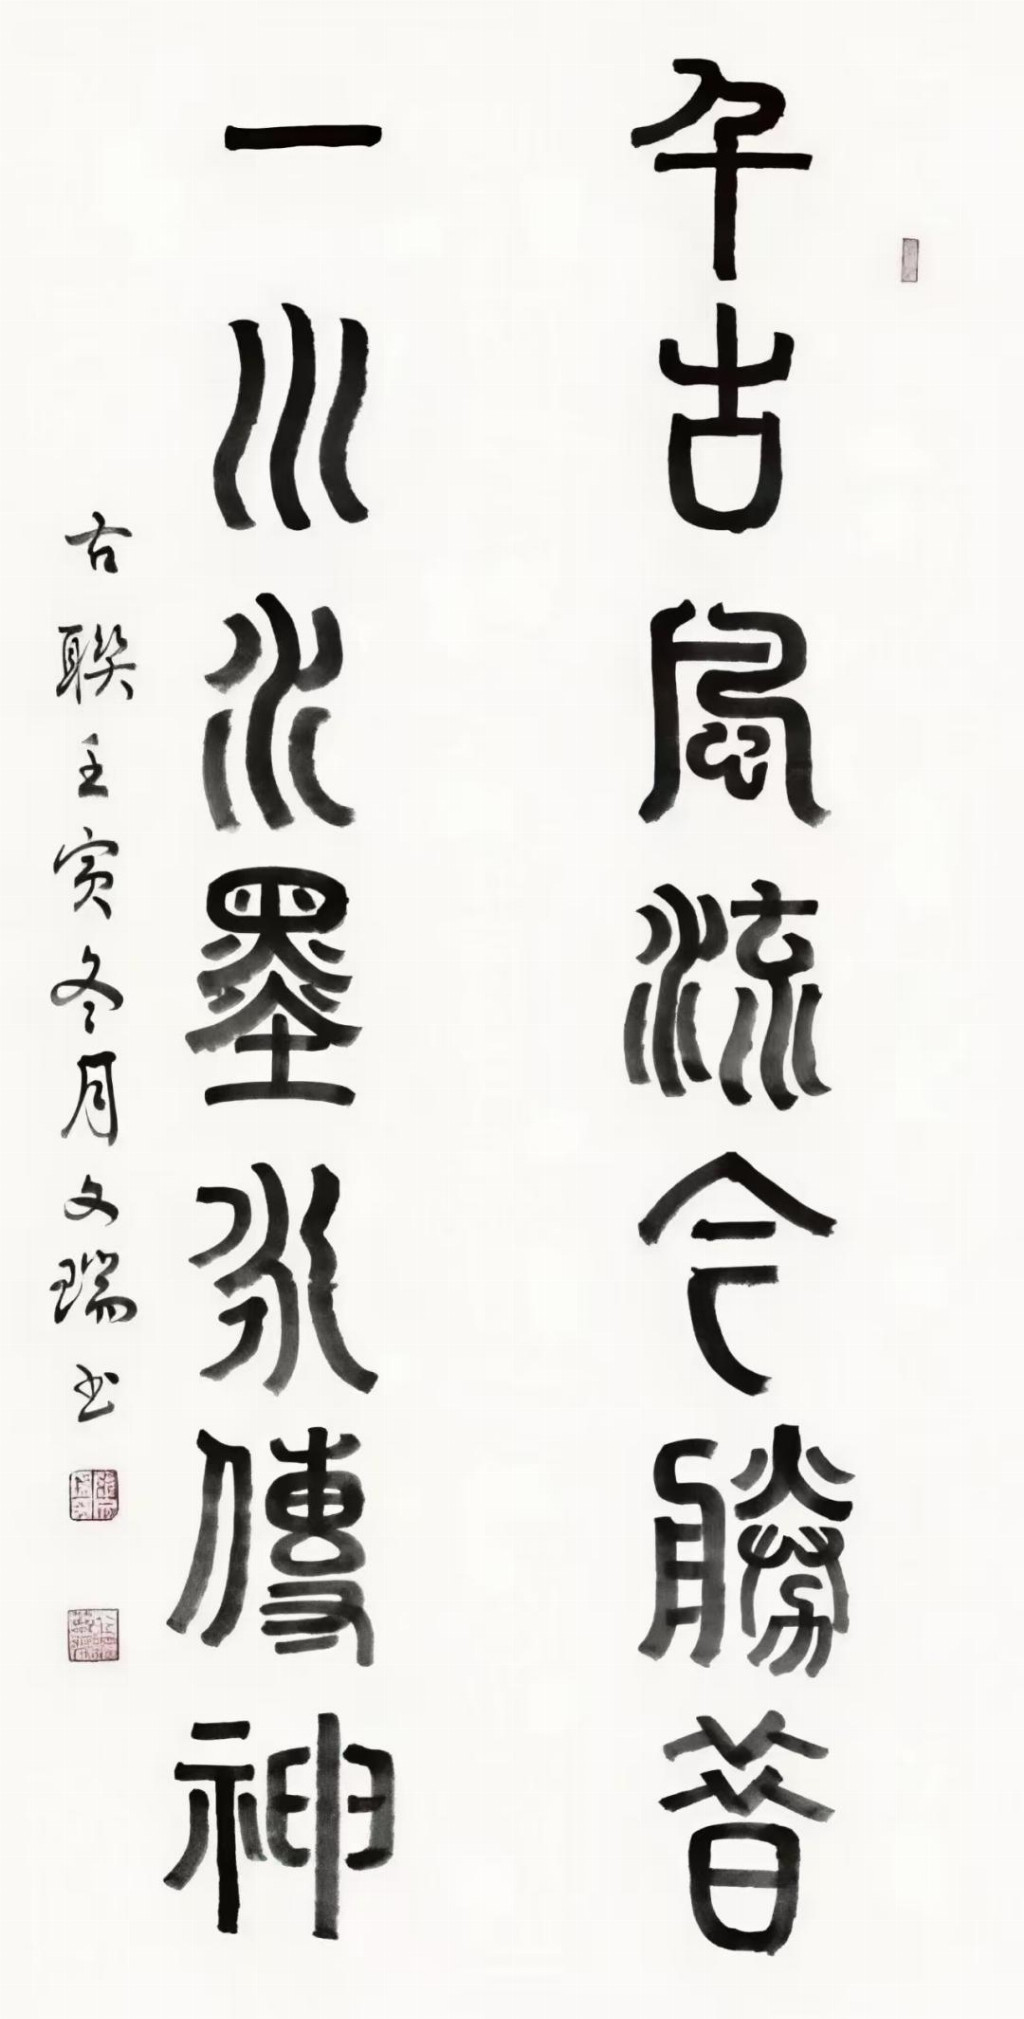 千古風流今勝昔
一川水墨永傳神
古聯壬寅冬月文瑞书